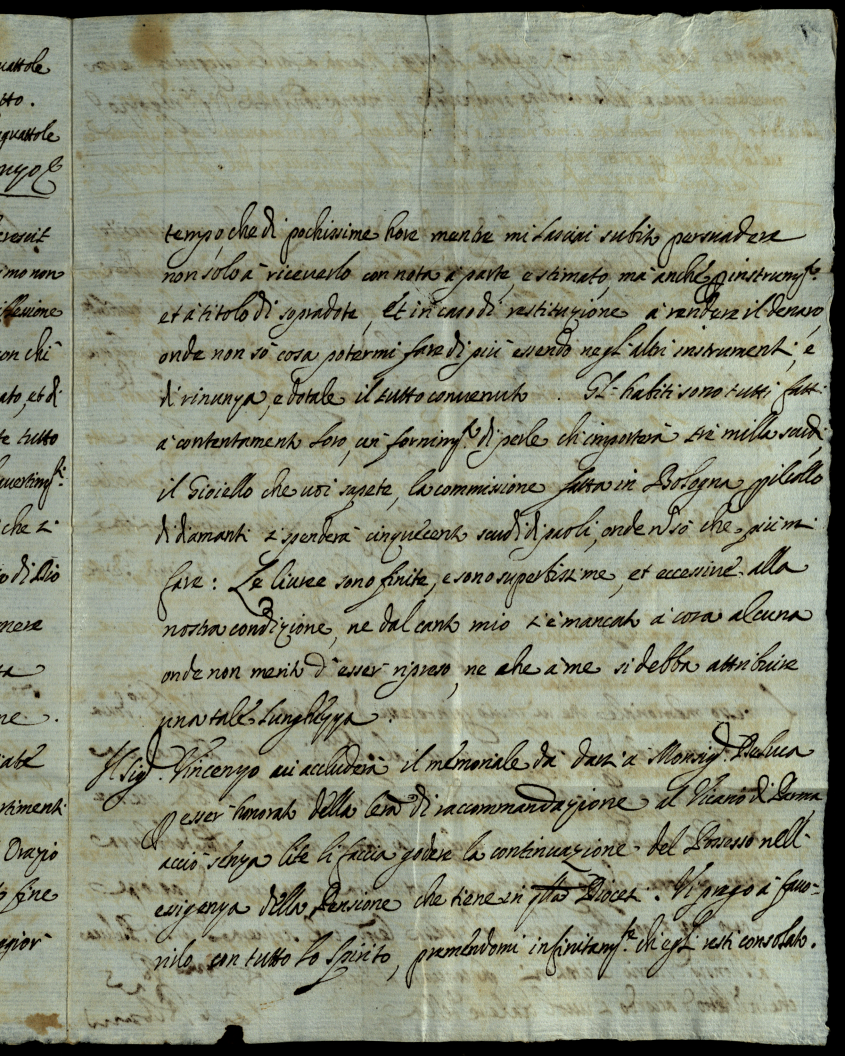 uattole
tto.
quattole
nzo
cescit
imo non
flessione
con chi
ato, et di
te tutto
vertim.ti
che s
o di Dio
mere
ta
ne.
iate
rtimenti
Orazio
o fine
ggior
tempo che di pochissime hore mentre mi lasciai subito persuadere
non solo à riceverlo con nota à parte, e stimato, mà anche p instrum.to
et à titolo di sopradote, et in caso di restituzione à rendere il denaro,
onde non sò cosa potermi fare di più essendo negl'altri instrumenti, e
di rinunza, e dotale il tutto convenuto. Gl'habiti sono tutti fatti
à contentamento loro, un fornim.to di perle ch'importerà trè milla scudi,
il Gioiello che voi sapete, la commissione fatta in Bologna p il collo
di diamanti si spenderà cinquecento scudi di paoli, onde nō sò che più mi
fare: Le livree sono finite, e sono superbissime, et eccessive alla
nostra condizione, ne dal canto mio s'è mancato à cosa alcuna
onde non merito d'esser ripreso, ne che à me si debba attribuire
una tale lunghezza.
Il Sig.r Vincenzo vi accluderà il memoriale da darsi à Monsig.r
p esser honorato della lr̄a di raccommandazione al Vicario di Parma,
acciò senza lite li faccia godere la continuazione del Possesso nell'
esigenza della Pensione che tiene in Diocesi. Vi prego à favo-
rirlo con tutto lo spirito, premendomi infinitam.te ch'egli resti consolato.